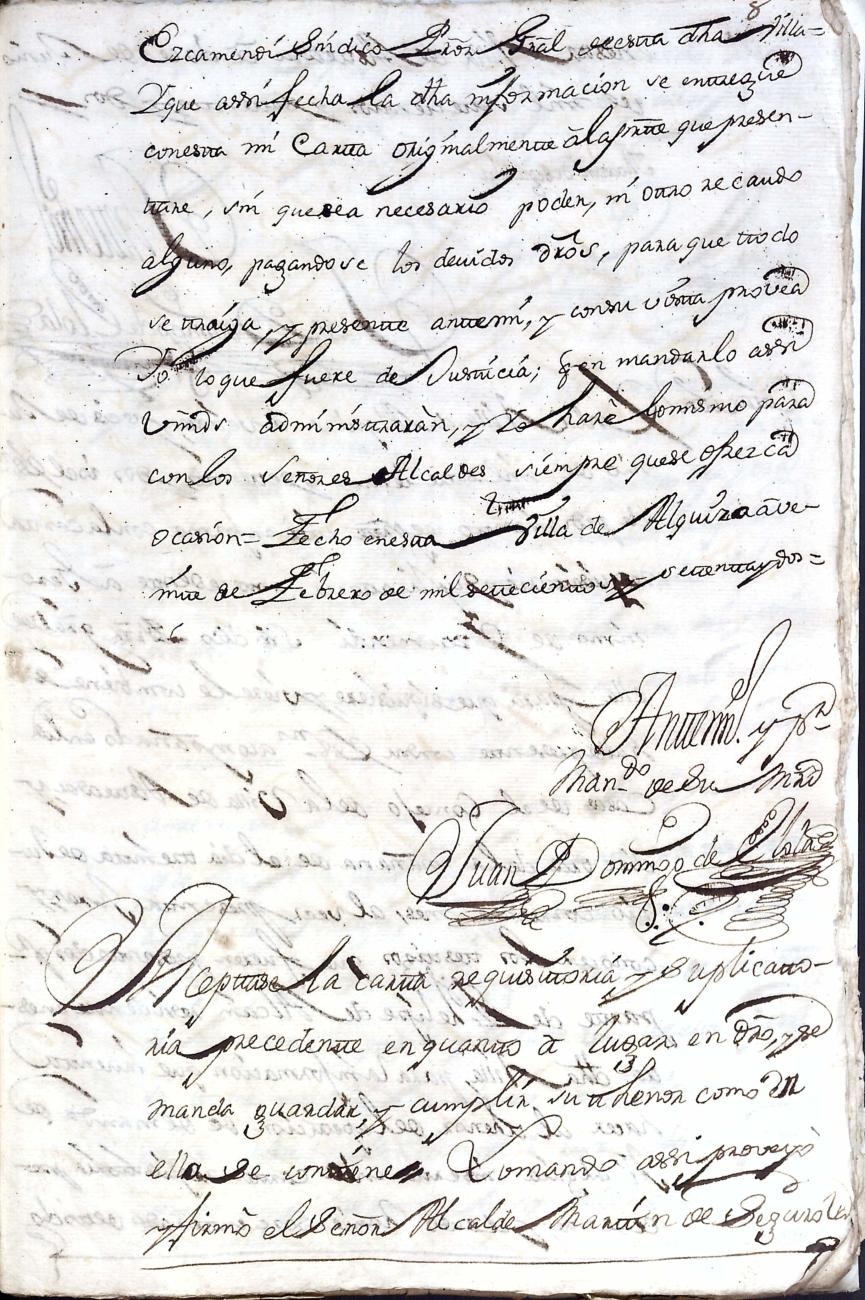 8
Ezcamendi Sindico Prõr Grãl de esta dha Villa=
Y que assi fecha la dha informacion se entregue
con esta mi Carta originalmente â la parte que presen-
ttare, sin que sea necesario poder, ni otro recaudo
alguno, pagandose los devidos drõs, para que ttodo
se ttraiga, y presente antte mi, y con su vista provea
Yo lo que fuere de Justicia; q̃ en mandarlo assi
Vmds administtraràn, y Yo harè lo mismo para
con los Señores Alcaldes siempre que se ofrezca
ocasión= Fecho en esta Villa de Alquiza a ve-
intte de Febrero de mil settecienttos y settentta y dos=
Antte mi. y pr
Man.do de Su Mrd
Juan Domingo de
Aceptase la cartta requisittoria, y Suplicatto-
ria precedente en quantto â lugar en drõ, y se
manda guardar, y cumplir su thenor como en
ella se conttiene Y lo mando assi proveyò
y firmò el Señor Alcalde Marttin de Segurola